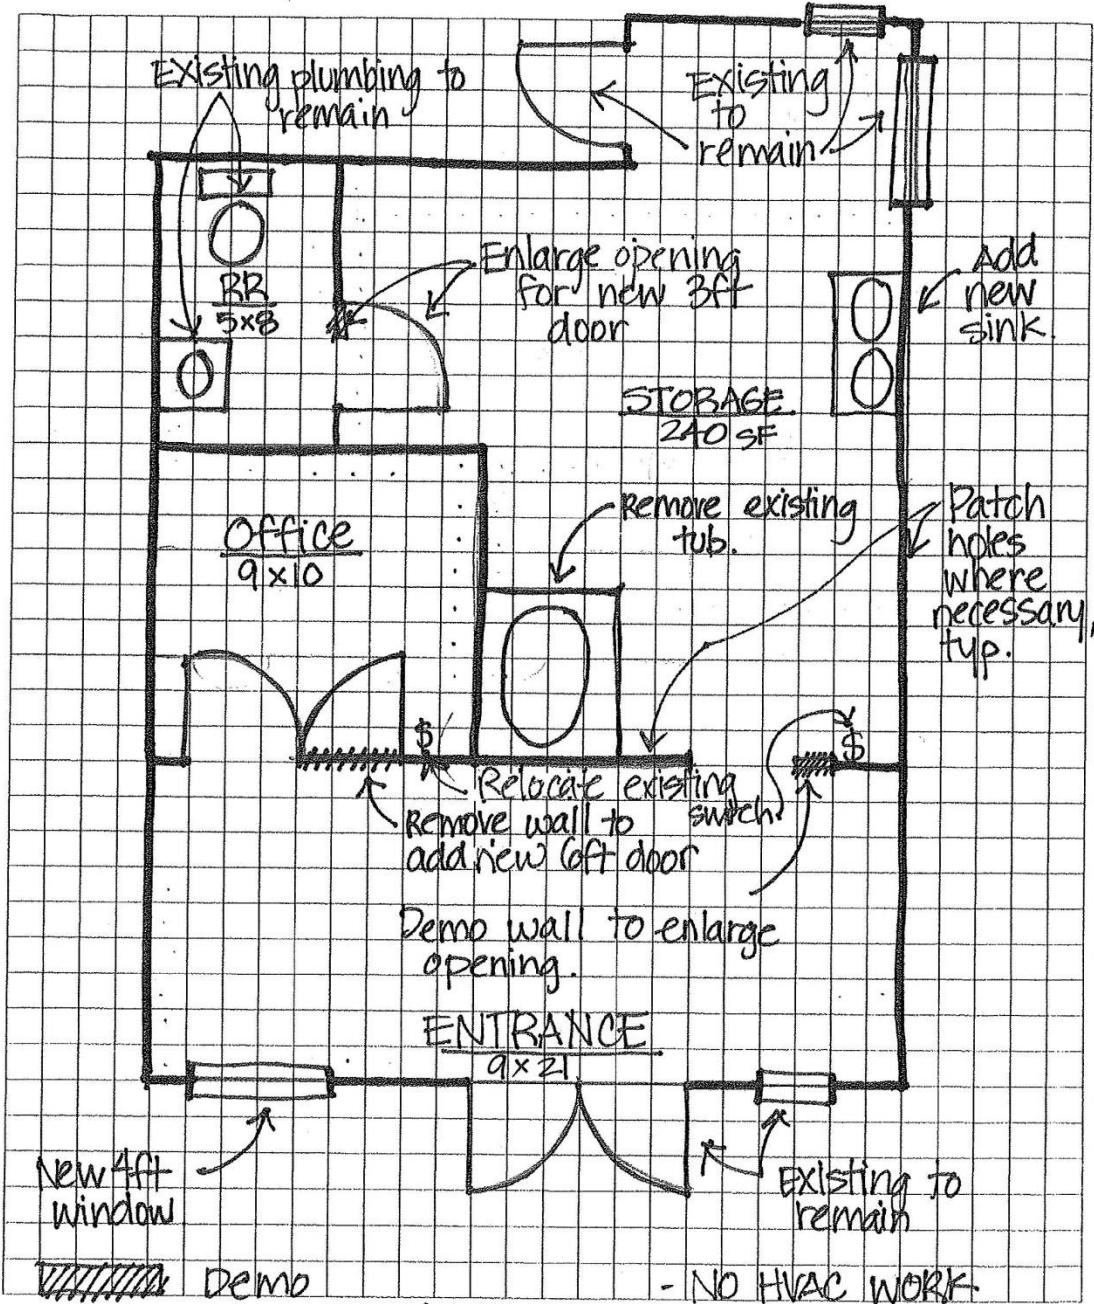 Existing plumbing to
remain
Existing
to
remain
RR
5x8
Enlarge opening
for new 3ft
door
Add
new
sink.
STORAGE
240 SF
Office
9x10
Remove existing
tub.
Patch
holes
where
necessary,
typ.
$
$
Relocate existing
switch
Remove wall to
add new 6ft door
Demo wall to enlarge
opening.
ENTRANCE
9x21
New 4ft
window
Existing to
remain
Demo
- NO HVAC WORK